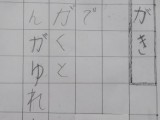 がき
で
がくと
んがゆれ